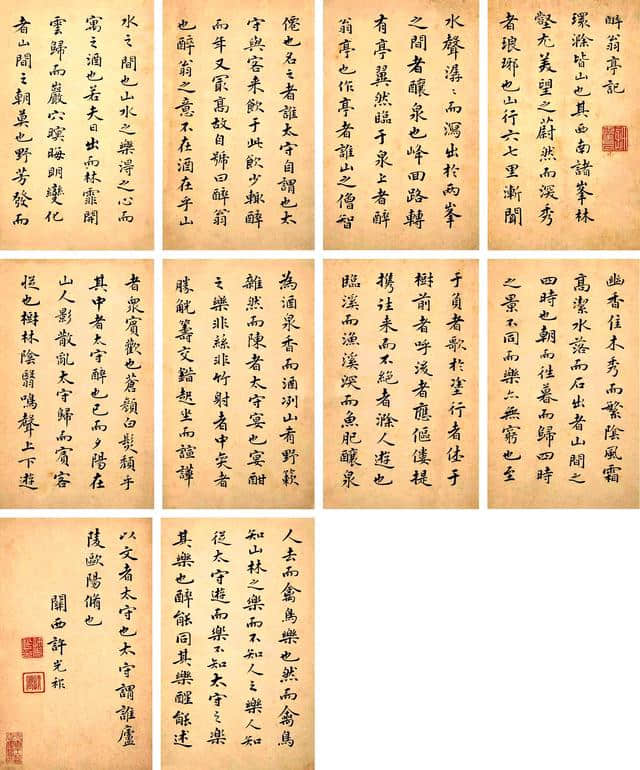 醉翁亭記
環滁皆山也其西南諸峯林
壑尤美望之蔚然而深秀
者琅琊也山行六七里漸聞
水聲潺々而瀉出於兩峯
之間者釀泉也峰回路轉
有亭翼然臨于泉上者醉
翁亭也作亭者誰山之僧智
僊也名之者誰太守自謂也太
守與客來飲于此飲少輒醉
而年又冣高故自號曰醉翁
也醉翁之意不在酒在乎山
水之間也山水之樂得之心而
寓之酒也若夫日出而林霏開
雲歸而巖穴暝晦明變化
者山間之朝莫也野芳發而
幽香佳木秀而繁陰風霜
高潔水落而石出者山間之
四時也朝而往暮而歸四時
之景不同而樂亦無窮也至
于負者歌於塗行者休于
樹前者呼後者應傴僂提
携往來而不絕者滁人遊也
臨溪而漁溪深而魚肥釀泉
為酒泉香而酒冽山肴野蔌
雜然而陳者太守宴也宴酣
之樂非絲非竹射者中奕者
勝觥籌交錯起坐而諠譁
者衆賓歡也蒼顏白髮頹乎
其中者太守醉也已而夕陽在
山人影散亂太守歸而賓客
從也樹林陰翳鳴聲上下遊
人去而禽鳥樂也然而禽鳥
知山林之樂而不知人之樂人知
從太守遊而樂不知太守之樂
其樂也醉能同其樂醒能述
以文者太守也太守謂誰廬
陵歐陽脩也
關西許光祚